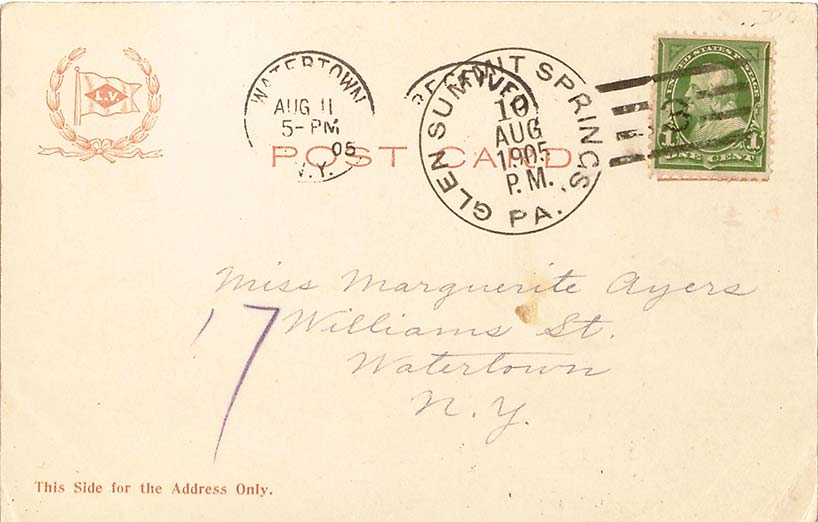 L.V.
WATERTOWN
AUG 11
5-PM
05
N.Y.
POST CARD
RECEIVED
GLEN SUMMIT SPRINGS
10
AUG
1905
P.M.
PA.
UNITED STATES
1 1
ONE CENT
Miss Marguerite Ayers
17 Williams St.
Watertown
N.Y.
This Side for the Address Only.